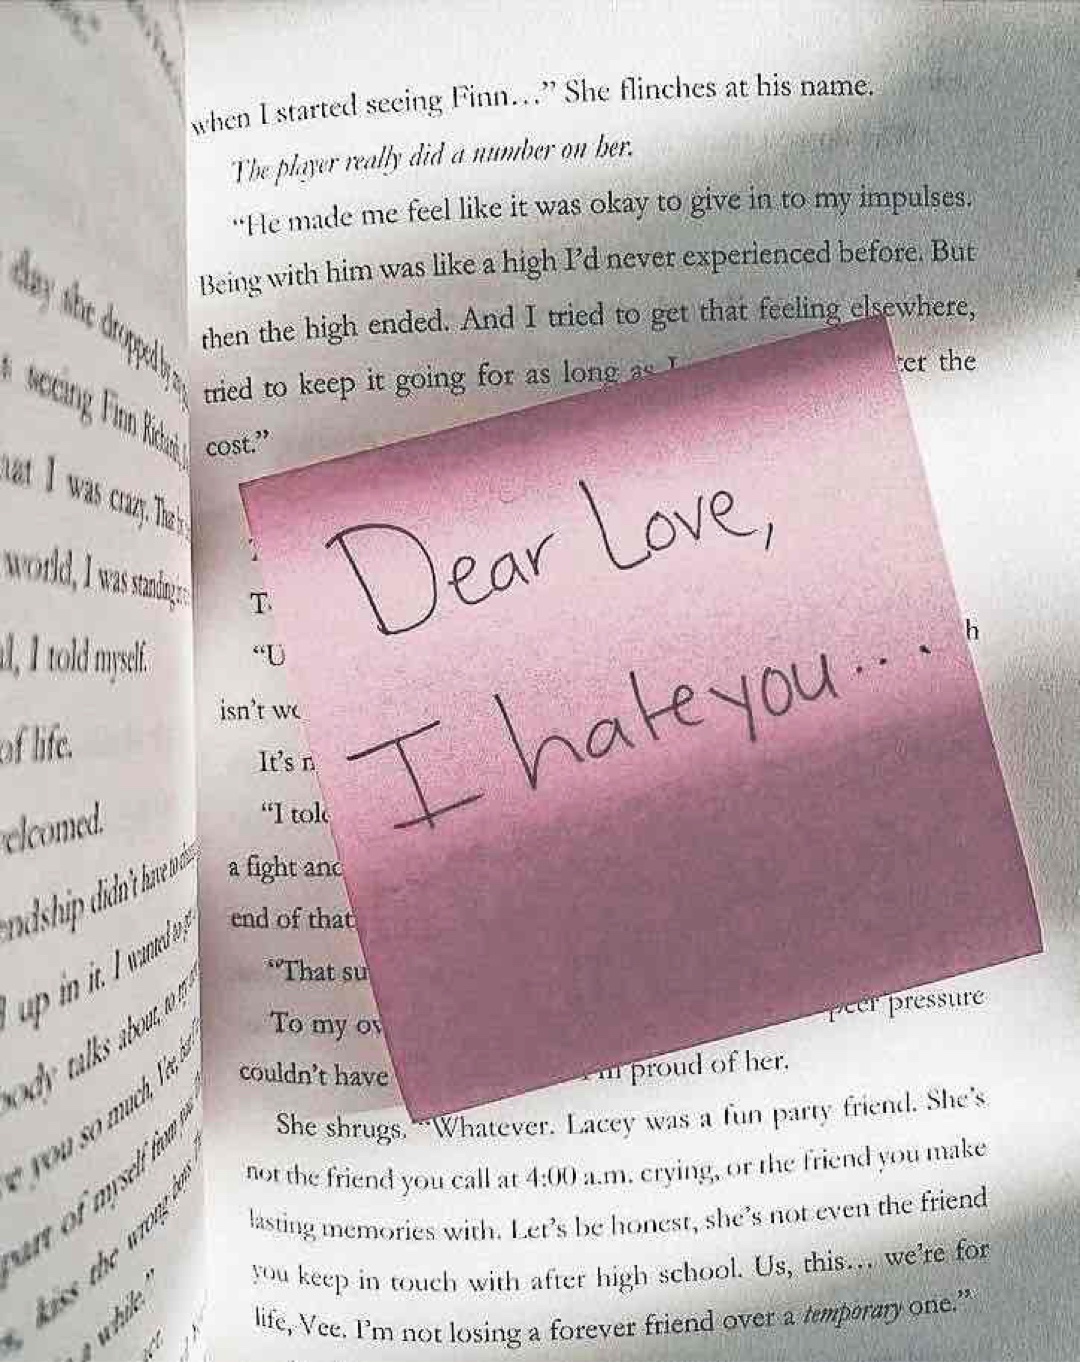 when I started seeing Finn…” She flinches at his name.
The player really did a number on her.
“He made me feel like it was okay to give in to my impulses.
Being with him was like a high I’d never experienced before. But
then the high ended. And I tried to get that feeling elsewhere,
tried to keep it going for as long as I the
cost.”
Dear Love,
I hate you...
“U
isn’t
It’s
“I
a fight
end of that
“That
To my pressure
couldn’t have proud of her.
She shrugs. “Whatever. Lacey was a fun party friend. She’s
not the friend you call at 4:00 a.m. crying, or the friend you make
lasting memories with. Let’s be honest, she’s not even the friend
you keep in touch with after high school. Us, this… we’re for
life, Vee. I’m not losing a forever friend over a temporary one.”
day she dropped by
seeing Finn
I was crazy.
world, I was standing
I told myself.
of life.
didn’t have to
up in it. I wanted to
talks about, to
you so much, Vee,
part of myself from
kiss the wrong boys
a while.”